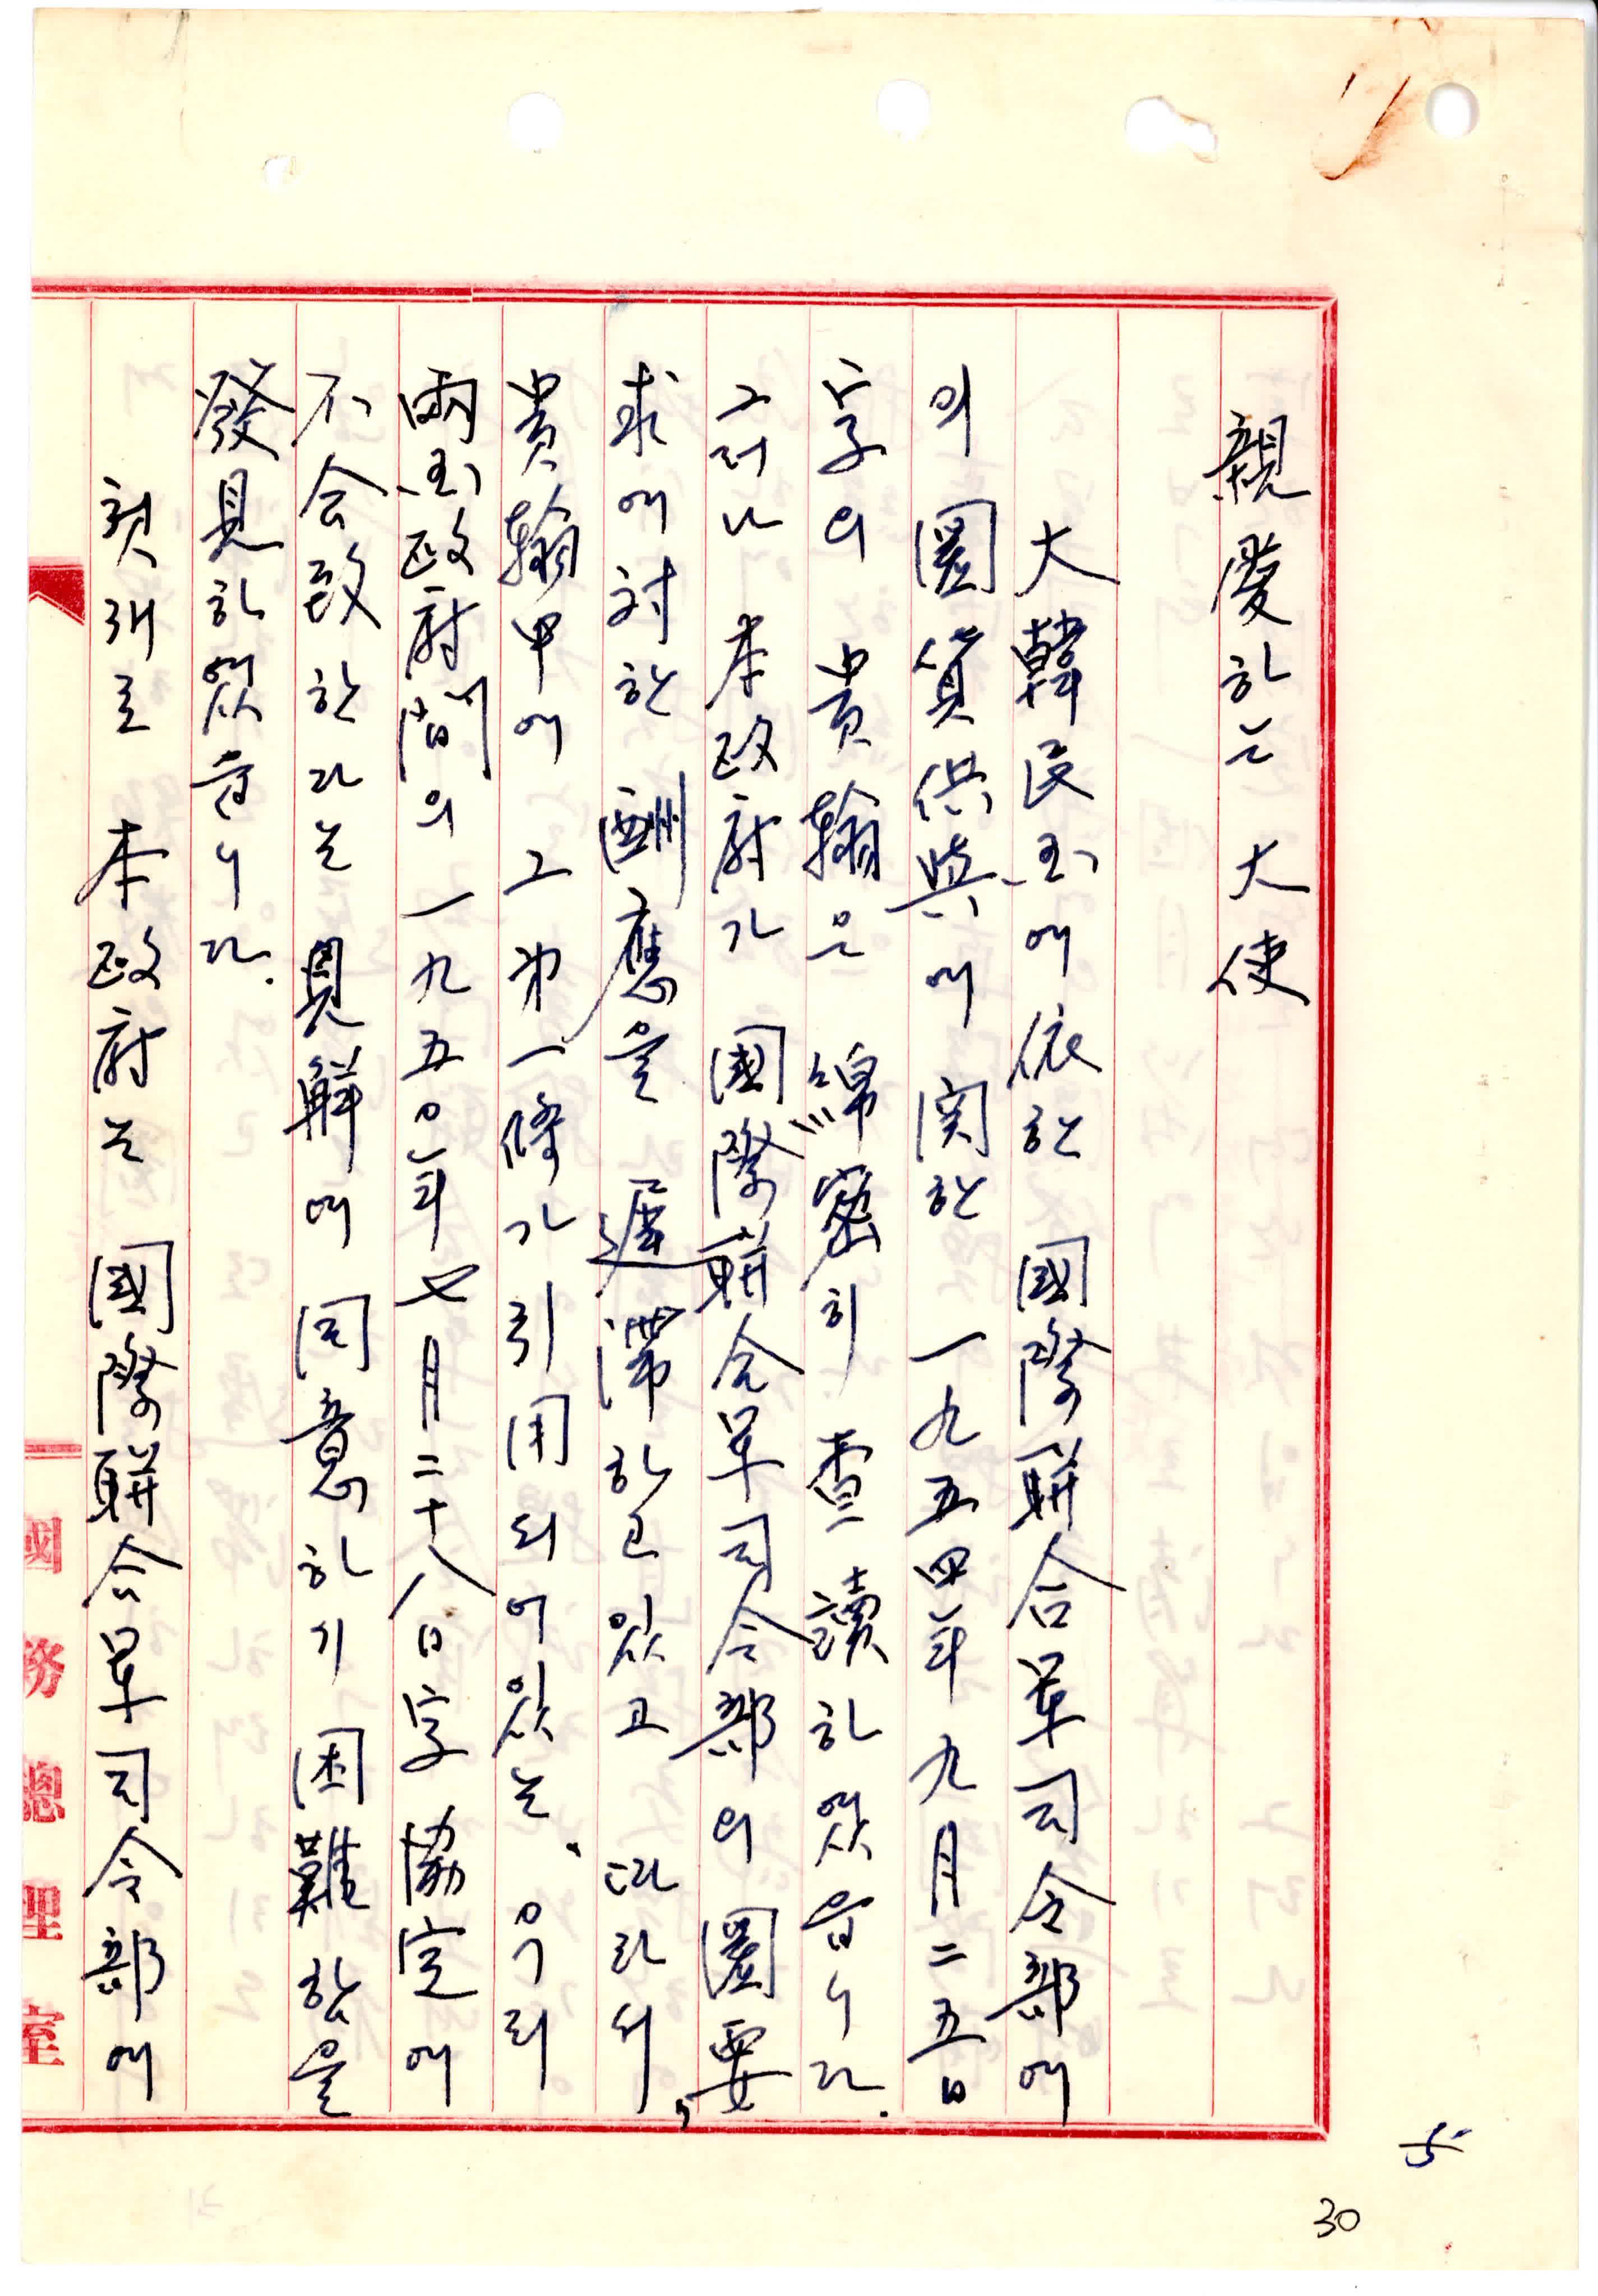 親愛하는 大使
大韓民国에 依한 國際聯合軍司令部에
의 圜貨供與에 関한 一九五四年 九月二五日
字의 貴翰은 綿密히 査讀하였읍니다.
그러나 本政府가 國際聯合軍司令部의 圜要
求에 対한 酬應을 遲滞하고 있고 따라서,
貴翰中에 그 第一條가 引用되어있는. 우리
両国政府間의 一九五0年七月二十八日字 協定에
不合致한다는 見解에 同意하기 困難함을
發見하였읍니다.
첫재로 本政府는 國際聯合軍司令部에
國務總理室
5
30